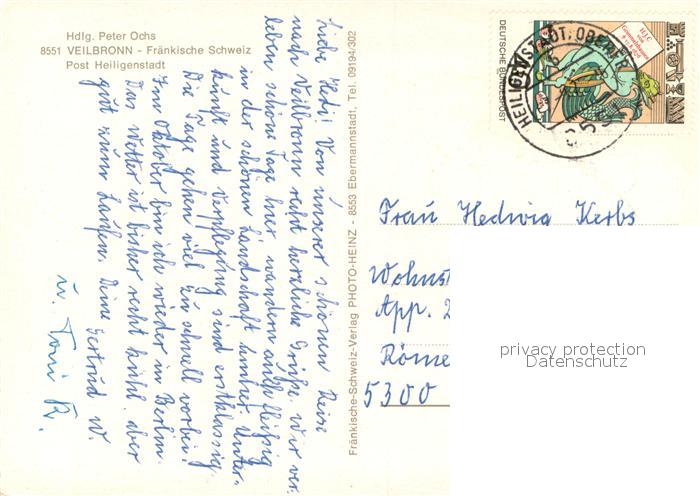 Hdlg. Peter Ochs
8551 VEILBRONN - Fränkische Schweiz
Post Heiligenstadt
Liebe Hedi! Von unserer schönen Reise
nach Veilbronn recht herzliche Grüße. Wir ver-
leben schöne Tage hier, wandern auch fleißig
in der schönen Landschaft umher. Unter-
kunft und Verpflegung sind erstklassig.
Die Tage gehen viel zu schnell vorbei.
Im Oktober bin ich wieder in Berlin.
Das Wetter ist bisher recht kühl, aber
gut zum Laufen. Deine Gertrud W.
u. Toni R.
Fränkische-Schweiz-Verlag PHOTO-HEINZ - 8553 Ebermannstadt, Tel. 09194/302
DEUTSCHE BUNDESPOST
H.J.C.
von
Grimmelshausen
Frau Hedwig Kerbs
Wohnst
App. 2
Röme
5300
privacy protection
Datenschutz